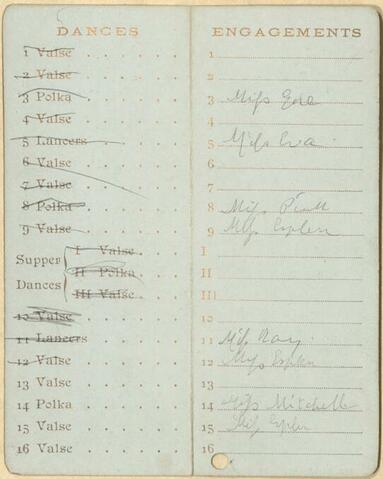 DANCES ENGAGEMENTS
1 Valse 1
2 Valse 2
3 Polka 3 Miss Eda
4 Valse 4
5 Lancers 5 Miss Eva
6 Valse 6
7 Valse 7
8 Polka 8 Miss
9 Valse 9 Miss Esplen
Supper Dances
I Valse I
II Polka II
III Valse III
10 Valse 10
11 Lancers 11 Miss Ray
12 Valse 12 Miss Esplen
13 Valse 13
14 Polka 14 Miss Mitchell
15 Valse 15 Miss Esplen
16 Valse 16